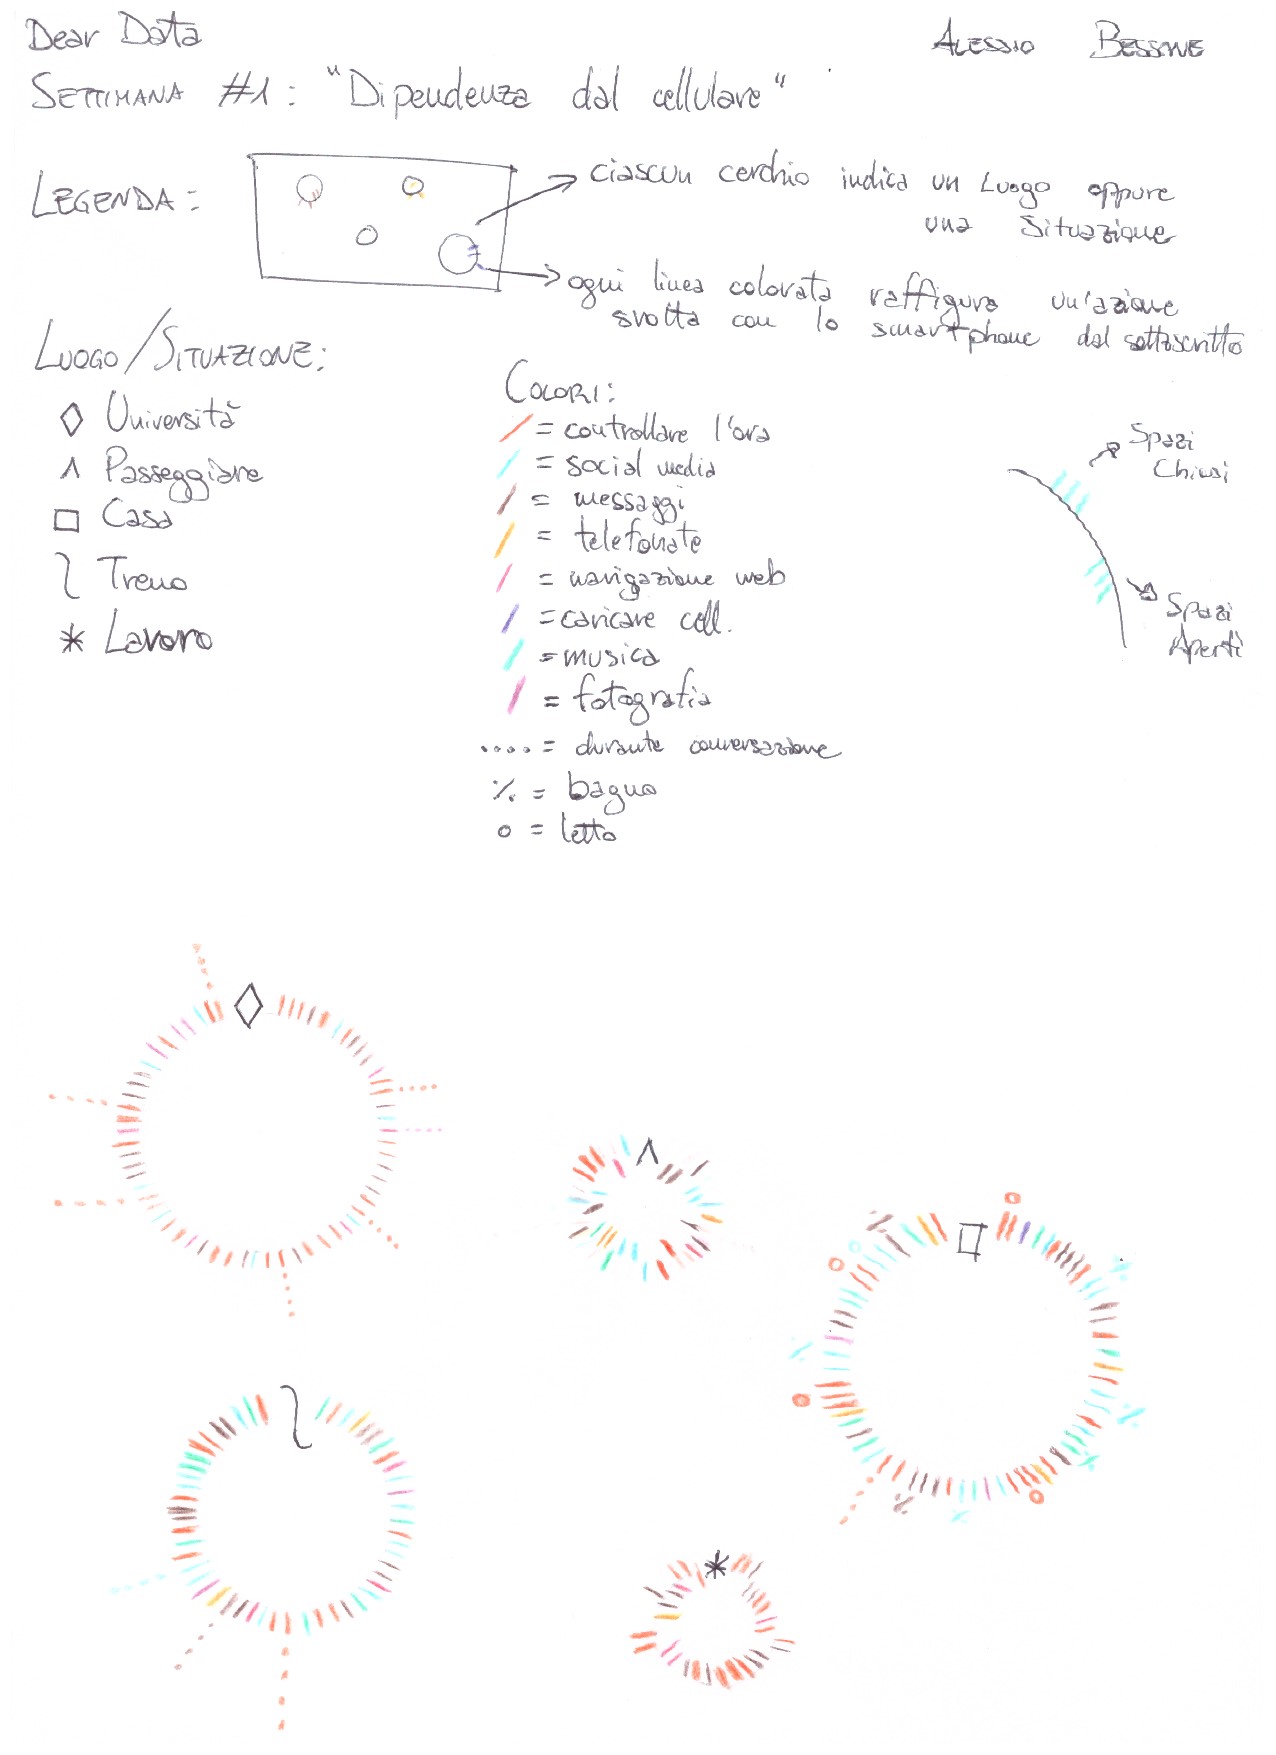 Dear Data
ALESSIO BESSONE
SETTIMANA #1: "Dipendenza dal cellulare"
LEGENDA:
ciascun cerchio indica un Luogo oppure
una Situazione
ogni linea colorata raffigura un'azione
svolta con lo smartphone dal sottoscritto
LUOGO/SITUAZIONE:
Università
Passeggiare
Casa
Treno
Lavoro
COLORI:
= controllare l'ora
= social media
= messaggi
= telefonate
= navigazione web
= caricare cell.
= musica
= fotografia
.... = durante conversazione
% = bagno
o = letto
Spazi
Chiusi
Spazi
Aperti